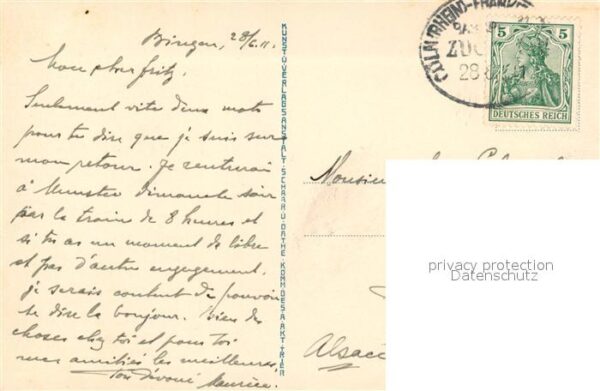 Bingen, 28/6.11.
Mon cher Fritz,
Seulement vite deux mots
pour te dire que je suis sur
mon retour. Je rentrerai
à Munster dimanche soir
par le train de 8 heures et
si tu as un moment de libre
et pas d'autre engagement
je serais content de pouvoir
te dire le bonjour. Bien des
choses chez toi et pour toi
mes amitiés les meilleures,
Ton dévoué Maurice.
KUNST-U.VERLAGSANSTALT SCHAAR U. DATHE KOMM.GES.A.AKT. TRIER
CÖLN (RHEIN)-FRANK
ZUG
28
5 5
DEUTSCHES REICH
Monsieur
privacy protection
Datenschutz
Alsace